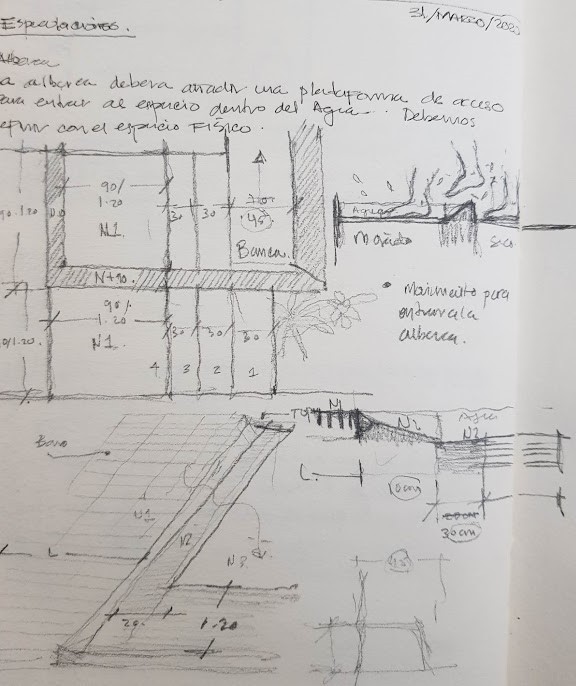 31/MARZO/202
Especulaciones.
Alberca
a alberca debera añadir una plataforma de acceso
para entrar al espacio dentro del Agua. Debemos
efinir con el espacio Físico.
90/
1.20
N1.
30
30
.45
Banca.
N+90.
90/
1.20
N1.
30
30
30
4
3
2
1
Agua
mojado
Seco
• movimiento para
entrar a la
alberca.
N1
N2
Agua
N2
L.
10cm
30cm
N1
N2
N3
L
20.
1.20